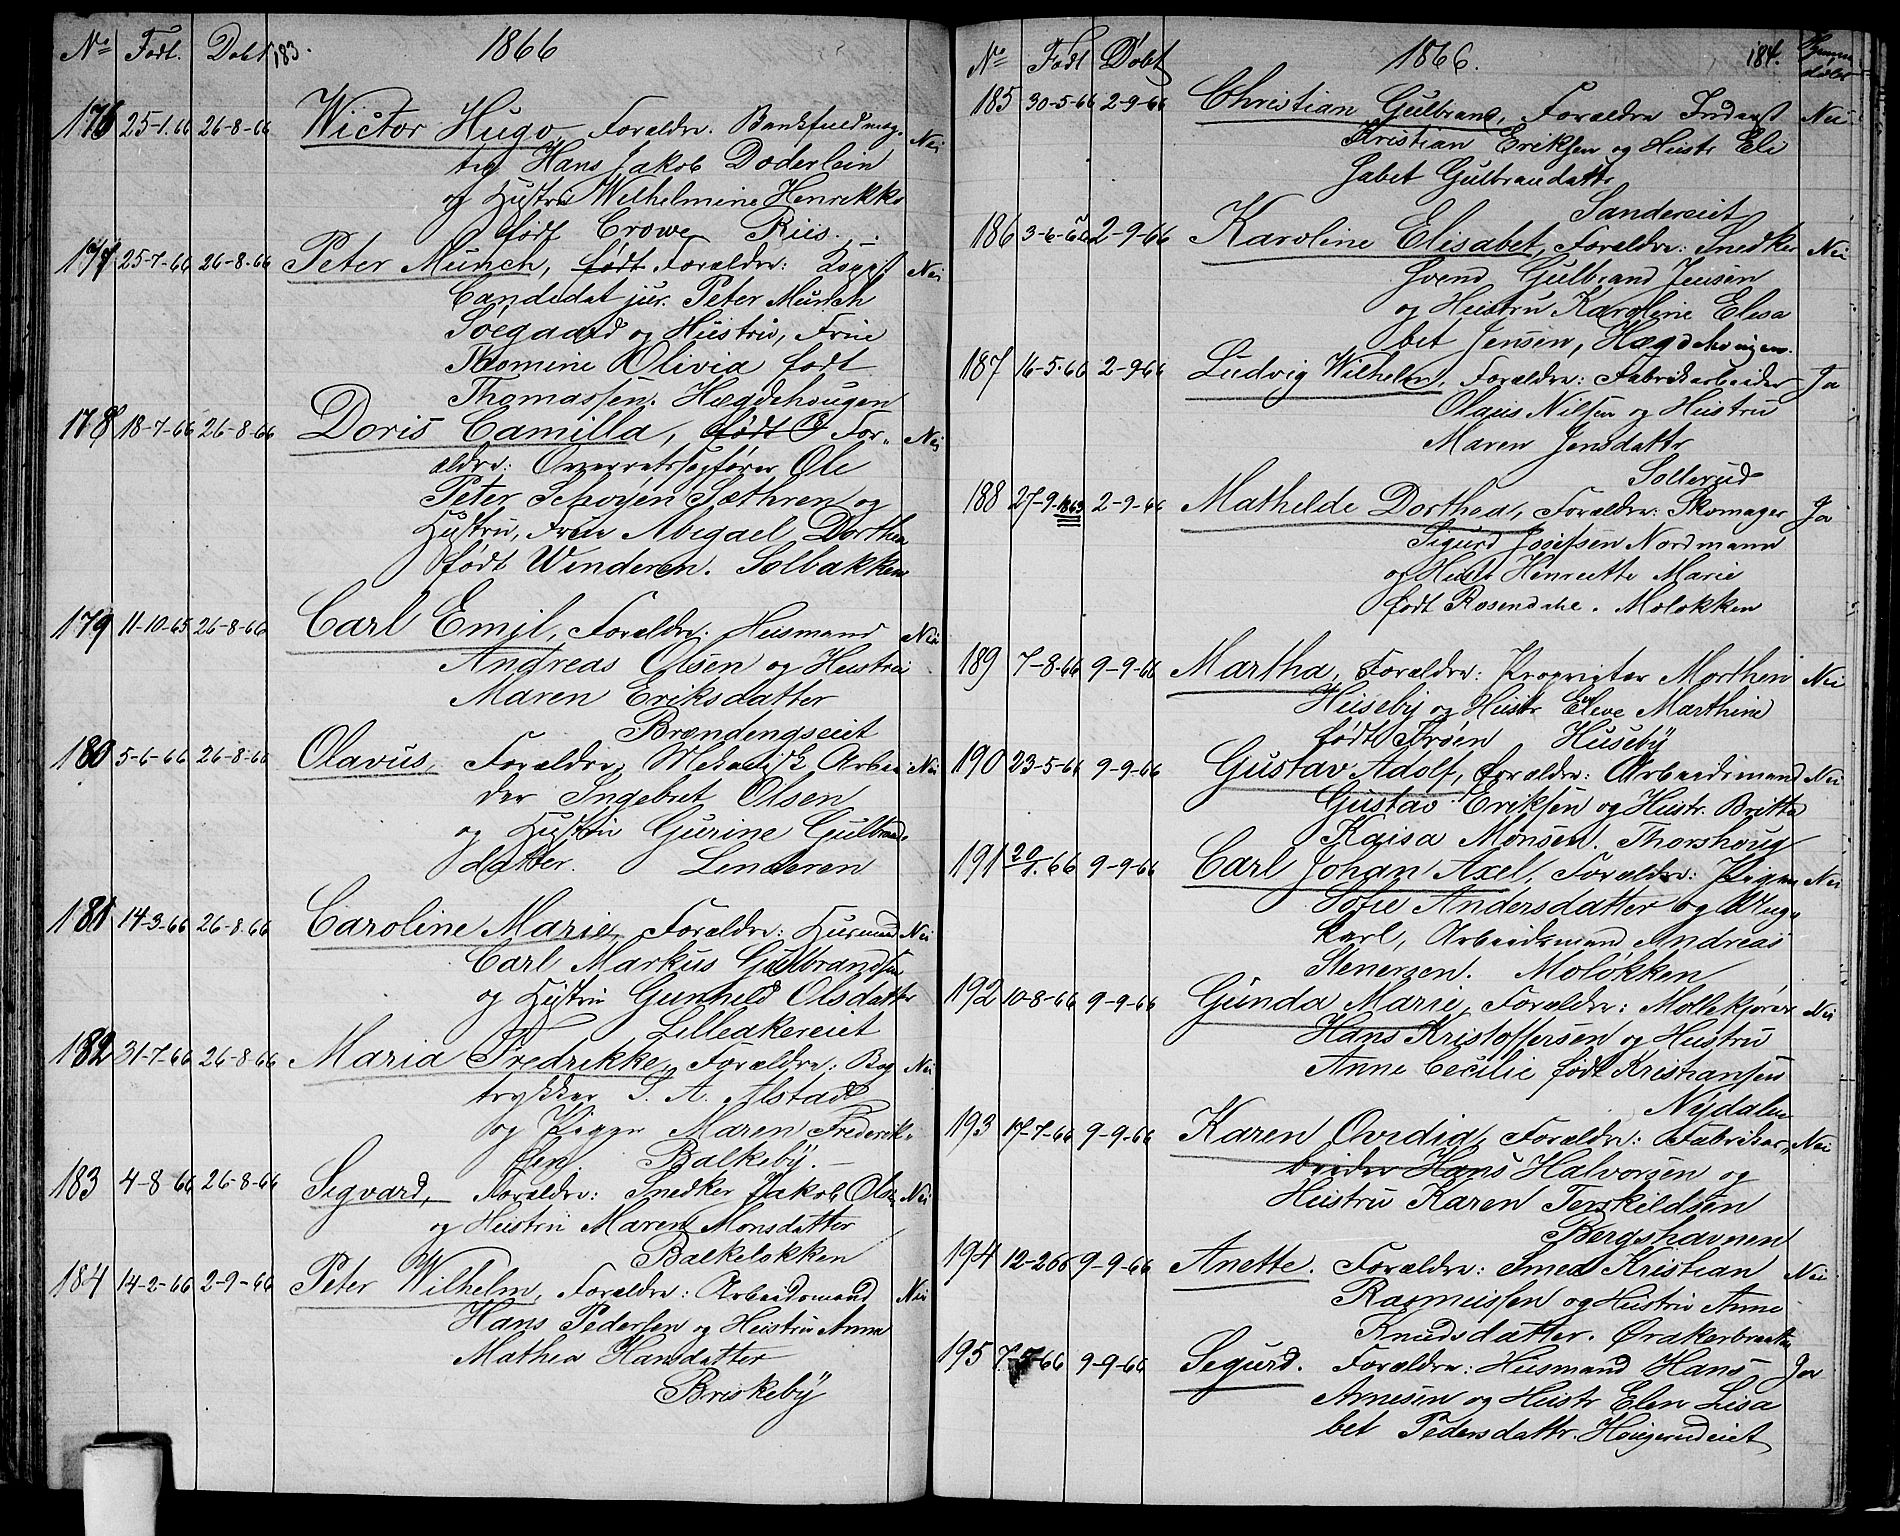 No Født. Døbt 183. 1866
176 25-1-66 26-8-66 Wictor Hugo, Forældre: Bankfuldmæg- Nei
tig Hans Jakob Døderlein
og Hustru Wilhelmine Henrikke
født Crowe Ries.
177 25-7-66 26-8-66 Peter Munch, født Forældre: Nei
Candidat jur. Peter Munch
Søegaard og Hustru, Frue
Thomine Olivia født
Thomassen. Hægdehougen
178 18-7-66 26-8-66 Doris Camilla, født O For- Nei
ældre: Overretssagfører Ole
Peter Schøyen Sæthren og
Hustru, Frue Abegael Dorthea
født Winderen. Solbakken
179 11-10-65 26-8-66 Carl Emil, Forældre: Husmand Nei
Andreas Olsen og Hustru
Maren Eriksdatter
Brændengseiet
180 5-6-66 26-8-66 Olavus, Forældre, Mekanisk Arbei Nei
der Ingebret Olsen
og Hustru Gurine Gulbrands
datter. Lenderen
181 14-3-66 26-8-66 Caroline Marie, Forældre: Husmand Nei
Carl Markus Gulbrandsen
og Hustru Gunhild Olsdatter
Lilleakereiet
182 31-7-66 26-8-66 Maria Fredrikke, Forældre: Bog Nei
trykker S. A. Alstad
og Pigen Maren Frederik-
sen Balkeby.
183 4-8-66 26-8-66 Sigvard, Forældre: Snedker Jakob Olsen Nei
og Hustru Maren Monsdatter
Balkeløkken
184 14-2-66 2-9-66 Peter Wilhelm, Forældre: Arbeidsmand Nei
Hans Pedersen og Hustru Anne
Mathea Hansdatter
Briskeby
No Født Døbt 1866. 184. Hjemme
døbt
185 30-5-66 2-9-66 Christian Gulbrand, Forældre Inderst Nei
Kristian Eriksen og Hustr Eli
sabet Gulbrandattr
Sandereiet
186 3-6-65 2-9-66 Karoline Elisabet, Forældre: Snedker Nei
Svend Gulbrand Jensen
og Hustru Karoline Elisa
bet Jensen, Hægdehougen.
187 16-5-66 2-9-66 Ludvig Wilhelm, Forældre: Fabrikarbeider Ja
Olaus Nilsen og Hustru
Maren Jensdattr
Sollerud
188 27-9-1863 2-9-66 Mathilde Dorthea, Forældre: Skomager Ja
Sigurd Josefsen Nordmann
og Hustr Henriette Marie
født Rosendahl. Moløkken
189 7-8-66 9-9-66 Martha, Forældre: Proprietær Morthen Nei
Huseby og Hustr Eleve Marthine
født Frøen Huseby
190 23-5-66 9-9-66 Gustav Adolf, Forældre: Arbeidsmand Nei
Gustav Eriksen og Hustr. Britta
Kaisa Monsen. Thorshoug
191 20/1-66 9-9-66 Carl Johan Axel, Forældre: Pigen Nei
Sofie Andersdatter og Unge
karl, Arbeidsmand Andreas
Stenersen. Moløkken
192 10-8-66 9-9-66 Gunda Marie, Forældre: Møllekjører Nei
Hans Kristoffersen og Hustru
Anne Cecilie født Kristiansen
Nydalen
193 17-7-66 9-9-66 Karen Ovidia, Forældre: Fabrikar- Nei
beider Hans Halvorsen og
Hustru Karen Terkildsen
Bergshavnen
194 12-2-66 9-9-66 Anette. Forældre: Smed Kristian Nei
Rasmussen og Hustru Anne
Knudsdatter. Ørakerbraaten
195 7-5-66 9-9-66 Sigurd. Forældre: Husmand Hans Ja
Arnesen og Hustr Elen Lisa
bet Pedersdattr. Hougerudeiet